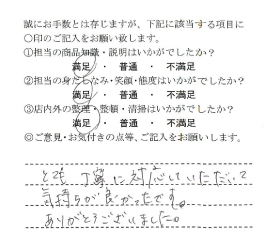 誠にお手数とは存じますが、下記に該当する項目に
○印のご記入をお願い致します。
①担当の商品知識・説明はいかがでしたか?
満足 ・ 普通 ・ 不満足
②担当の身だしなみ・笑顔・態度はいかがでしたか?
満足 ・ 普通 ・ 不満足
③店内外の整理・整頓・清掃はいかがでしたか?
満足 ・ 普通 ・ 不満足
◎ご意見・お気付きの点等、ご記入をお願いします。
とても丁寧に対応していただいて
気持ちが良かったです。
ありがとうございました。